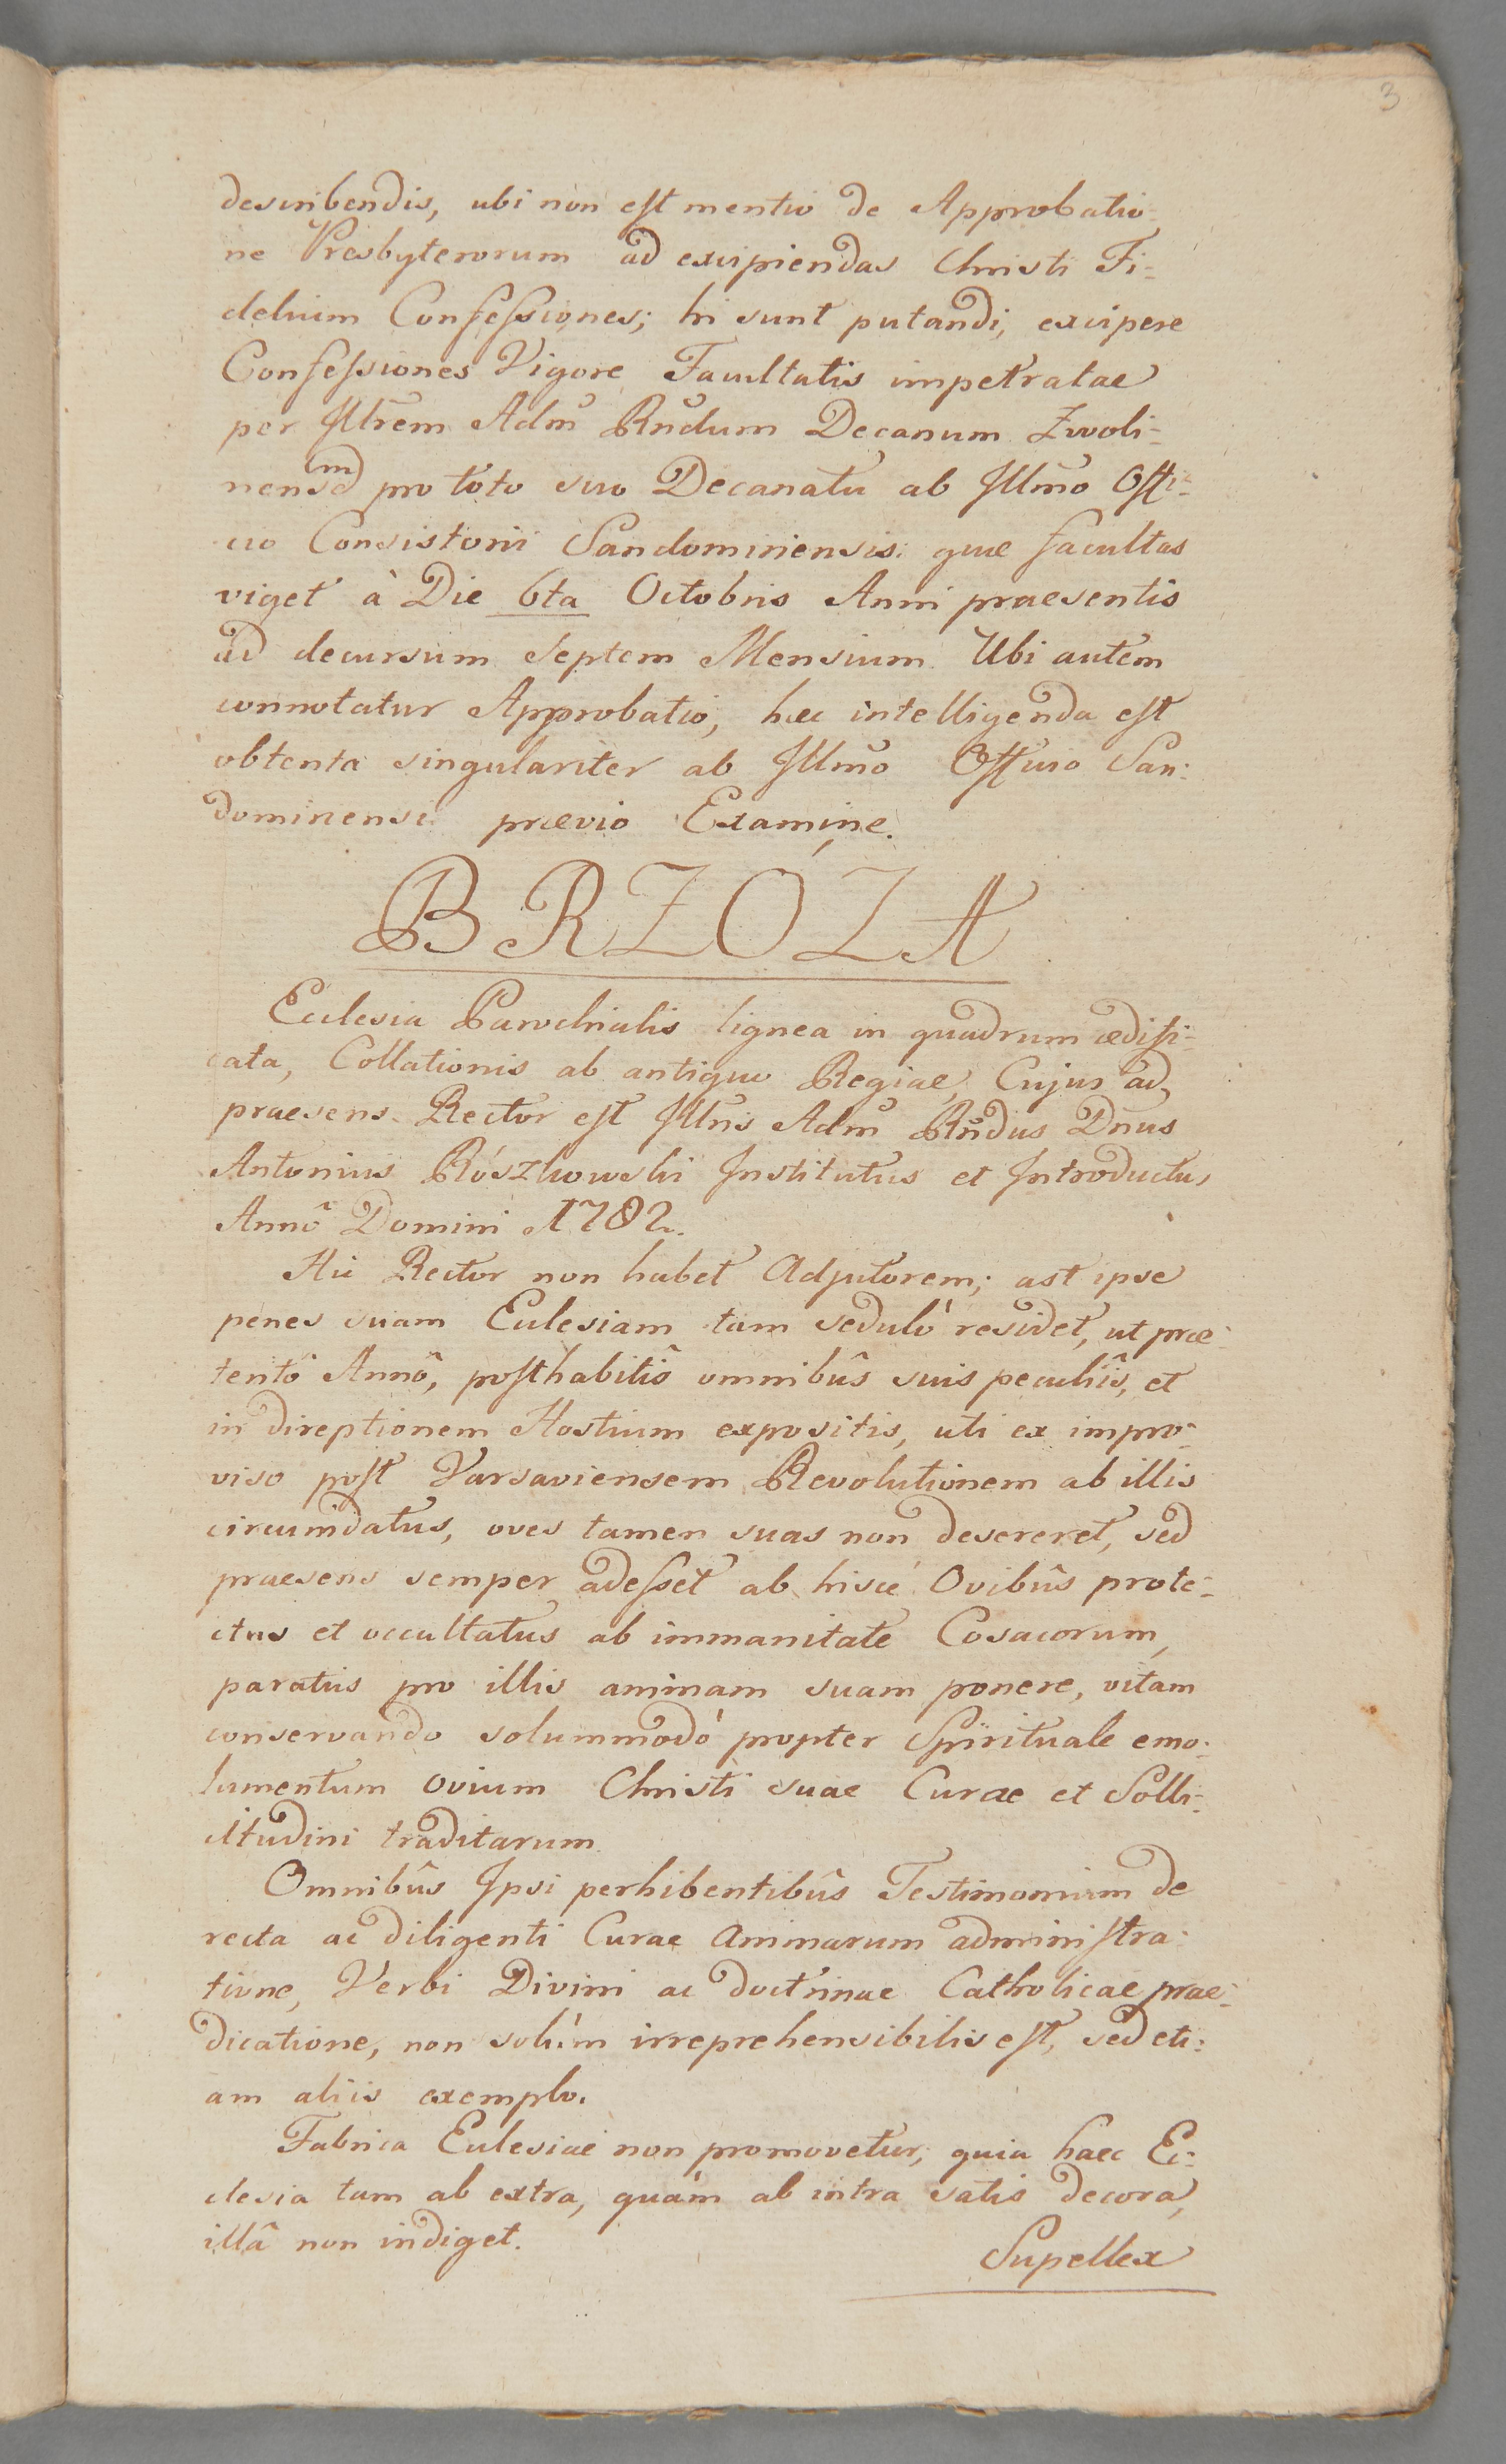 3
describendis, ubi non est mentio de Approbatio-
ne Presbyterorum ad excipiendas Christi Fi-
delium Confessiones; hi sunt putandi, excipere
Confessiones Vigore Facultatis impetratae
per Illrem Adm Rndum Decanum Zwoli-
nensem pro toto suo Decanatu ab Illmo Offi-
cio Consistorii Sandomiriensis: quae facultas
viget à Die 6ta Octobris Anni praesentis
ad decursum Septem Mensium. Ubi autem
connotatur Approbatio, haec intelligenda est
obtenta singulariter ab Illmo Officio San-
domiriensi praevio Examine.
BRZÓZA
Ecclesia Parochialis lignea in quadrum aedifi-
cata, Collationis ab antiquo Regiae, Cujus ad
praesens Rector est Illris Adm Rndus Dnus
Antonius Rószkowski Institutus et Introductus
Annô Domini 1782.
Hic Rector non habet Adjutorem; ast ipse
penes suam Ecclesiam tam sedulò residet, ut prae-
teritô Annô, posthabitîs omnibûs suis peculiîs, et
in direptionem Hostium expositis, uti ex impro-
viso post Varsaviensem Revolutionem ab illis
circumdatus, oves tamen suas non desereret, sed
praesens semper adesset ab hisce Ovibûs prote-
ctus et occultatus ab immanitate Cosacorum,
paratus pro illis animam suam ponere, vitam
conservando solummodò propter Spirituale emo-
lumentum Ovium Christi suae Curae et Solli-
citudini traditarum.
Omnibûs Ipsi perhibentibûs Testimonium de
recta ac diligenti Curae Animarum administra-
tione, Verbi Divini ac doctrinae Catholicae prae-
dicatione, non solùm irreprehensibilis est, sed eti-
am aliis exemplo.
Fabrica Ecclesiae non promovetur, quia haec Ec-
clesia tam ab extra, quàm ab intra satis decora,
illâ non indiget.
Supellex